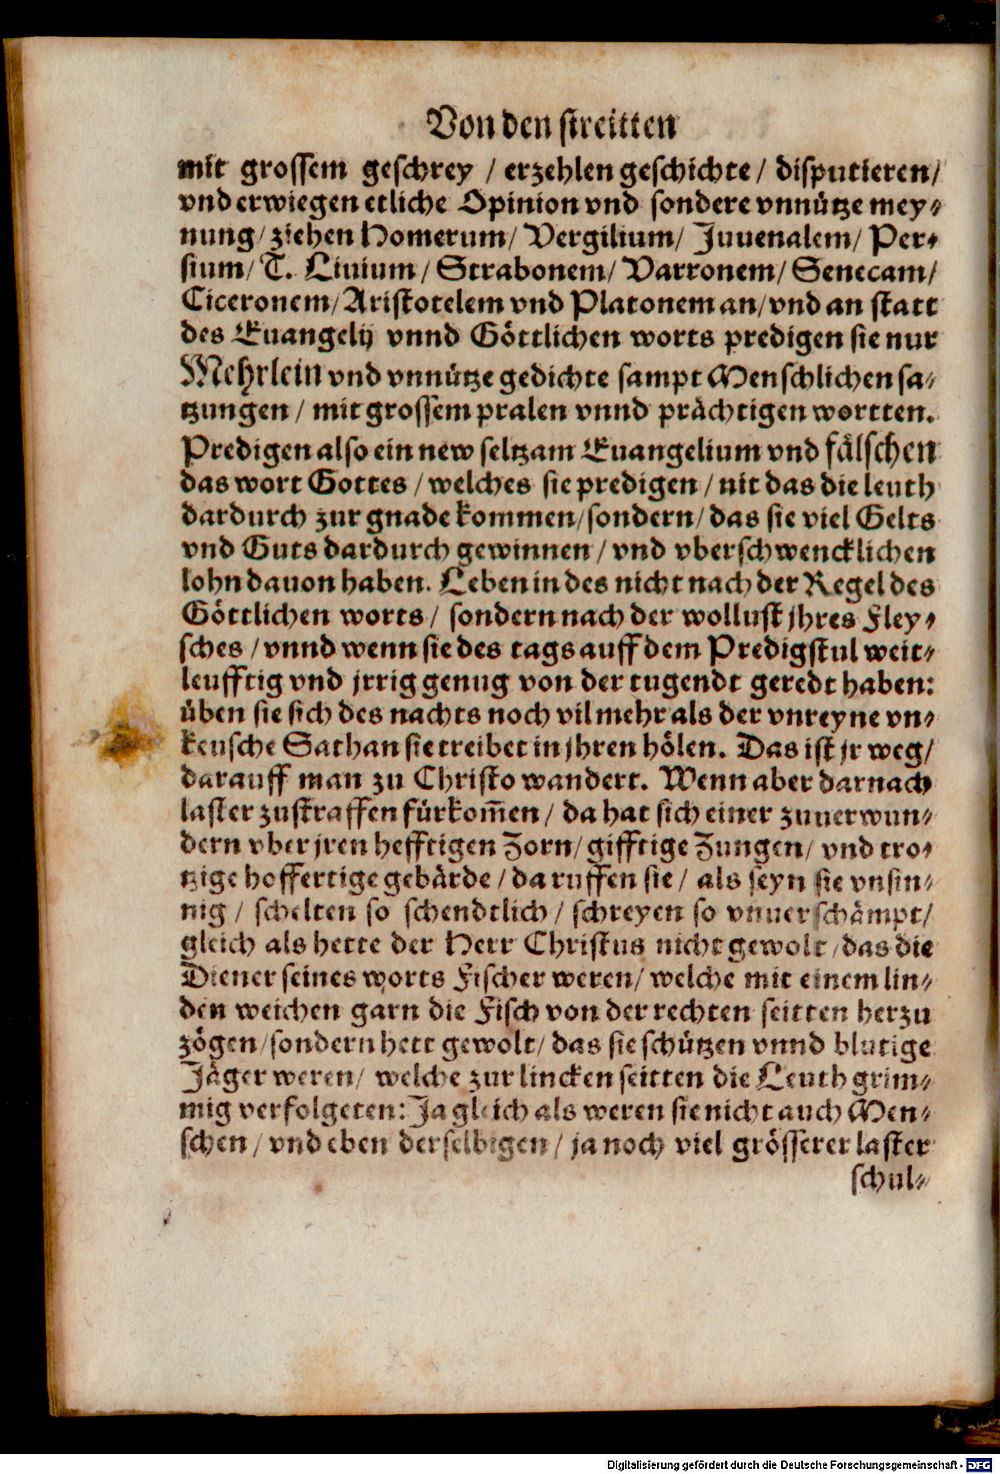 Von den streitten
mit grossem geschrey / erzehlen geschichte / disputieren/
vnd erwiegen etliche Opinion vnd sondere vnnütze mey⸗
nung / ziehen Homerum / Vergilium / Juuenalem / Per⸗
sium / T. Liuium / Strabonem / Varronem / Senecam /
Ciceronem / Aristotelem vnd Platonem an / vnd an statt
des Euangelij vnnd Göttlichen worts predigen sie nur
Mehrlein vnd vnnütze gedichte sampt Menschlichen sa⸗
tzungen / mit grossem pralen vnnd prächtigen wortten.
Predigen also ein new seltzam Euangelium vnd fälschen
das wort Gottes / welches sie predigen / nit das die leuth
dardurch zur gnade kommen / sondern / das sie viel Gelts
vnd Guts dardurch gewinnen / vnd vberschwencklichen
lohn dauon haben. Leben in des nicht nach der Regel des
Göttlichen worts / sondern nach der wollust jhres Fley⸗
sches / vnnd wenn sie des tags auff dem Predigstul weit⸗
leufftig vnd jrrig genug von der tugendt geredt haben:
üben sie sich des nachts noch vil mehr als der vnreyne vn⸗
keusche Sathan sie treibet in jhren hölen. Das ist jr weg /
darauff man zu Christo wandert. Wenn aber darnach
laster zustraffen fürkom̃en / da hat sich einer zuuerwun⸗
dern vber jren hefftigen Zorn / gifftige Zungen / vnd tro⸗
tzige hoffertige gebärde / da ruffen sie / als seyn sie vnsin⸗
nig / schelten so schendtlich / schreyen so vnuerschämpt /
gleich als hette der Herr Christus nicht gewolt / das die
Diener seines worts Fischer weren / welche mit einem lin⸗
den weichen garn die Fisch von der rechten seitten herzu
zögen / sondern hett gewolt / das sie schützen vnnd blutige
Jäger weren / welche zur lincken seitten die Leuth grim⸗
mig verfolgeten: Ja gleich als weren sie nicht auch Men⸗
schen / vnd eben derselbigen / ja noch viel grösserer laster
schul⸗
Digitalisierung gefördert durch die Deutsche Forschungsgemeinschaft - DFG